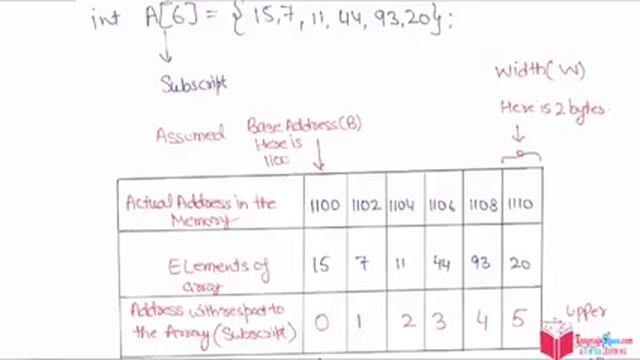 int A[6] = { 15,7, 11, 44, 93,20};
Subscript
Width(W)
Here is 2 bytes.
Assumed Base Address(B)
Here is
1100
Actual Address in the Memory 1100 1102 1104 1106 1108 1110
Elements of array 15 7 11 44 93 20
Address with respect to the Array (Subscript) 0 1 2 3 4 5
upper